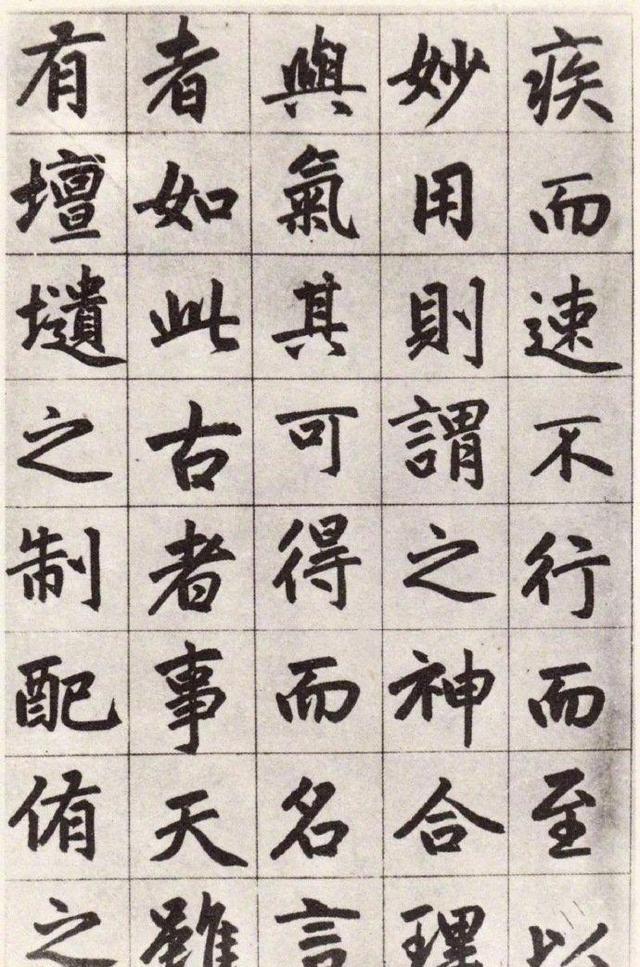 疾而速不行而至以
妙用則謂之神合理
與氣其可得而名言
者如此古者事天雖
有壇壝之制配侑之